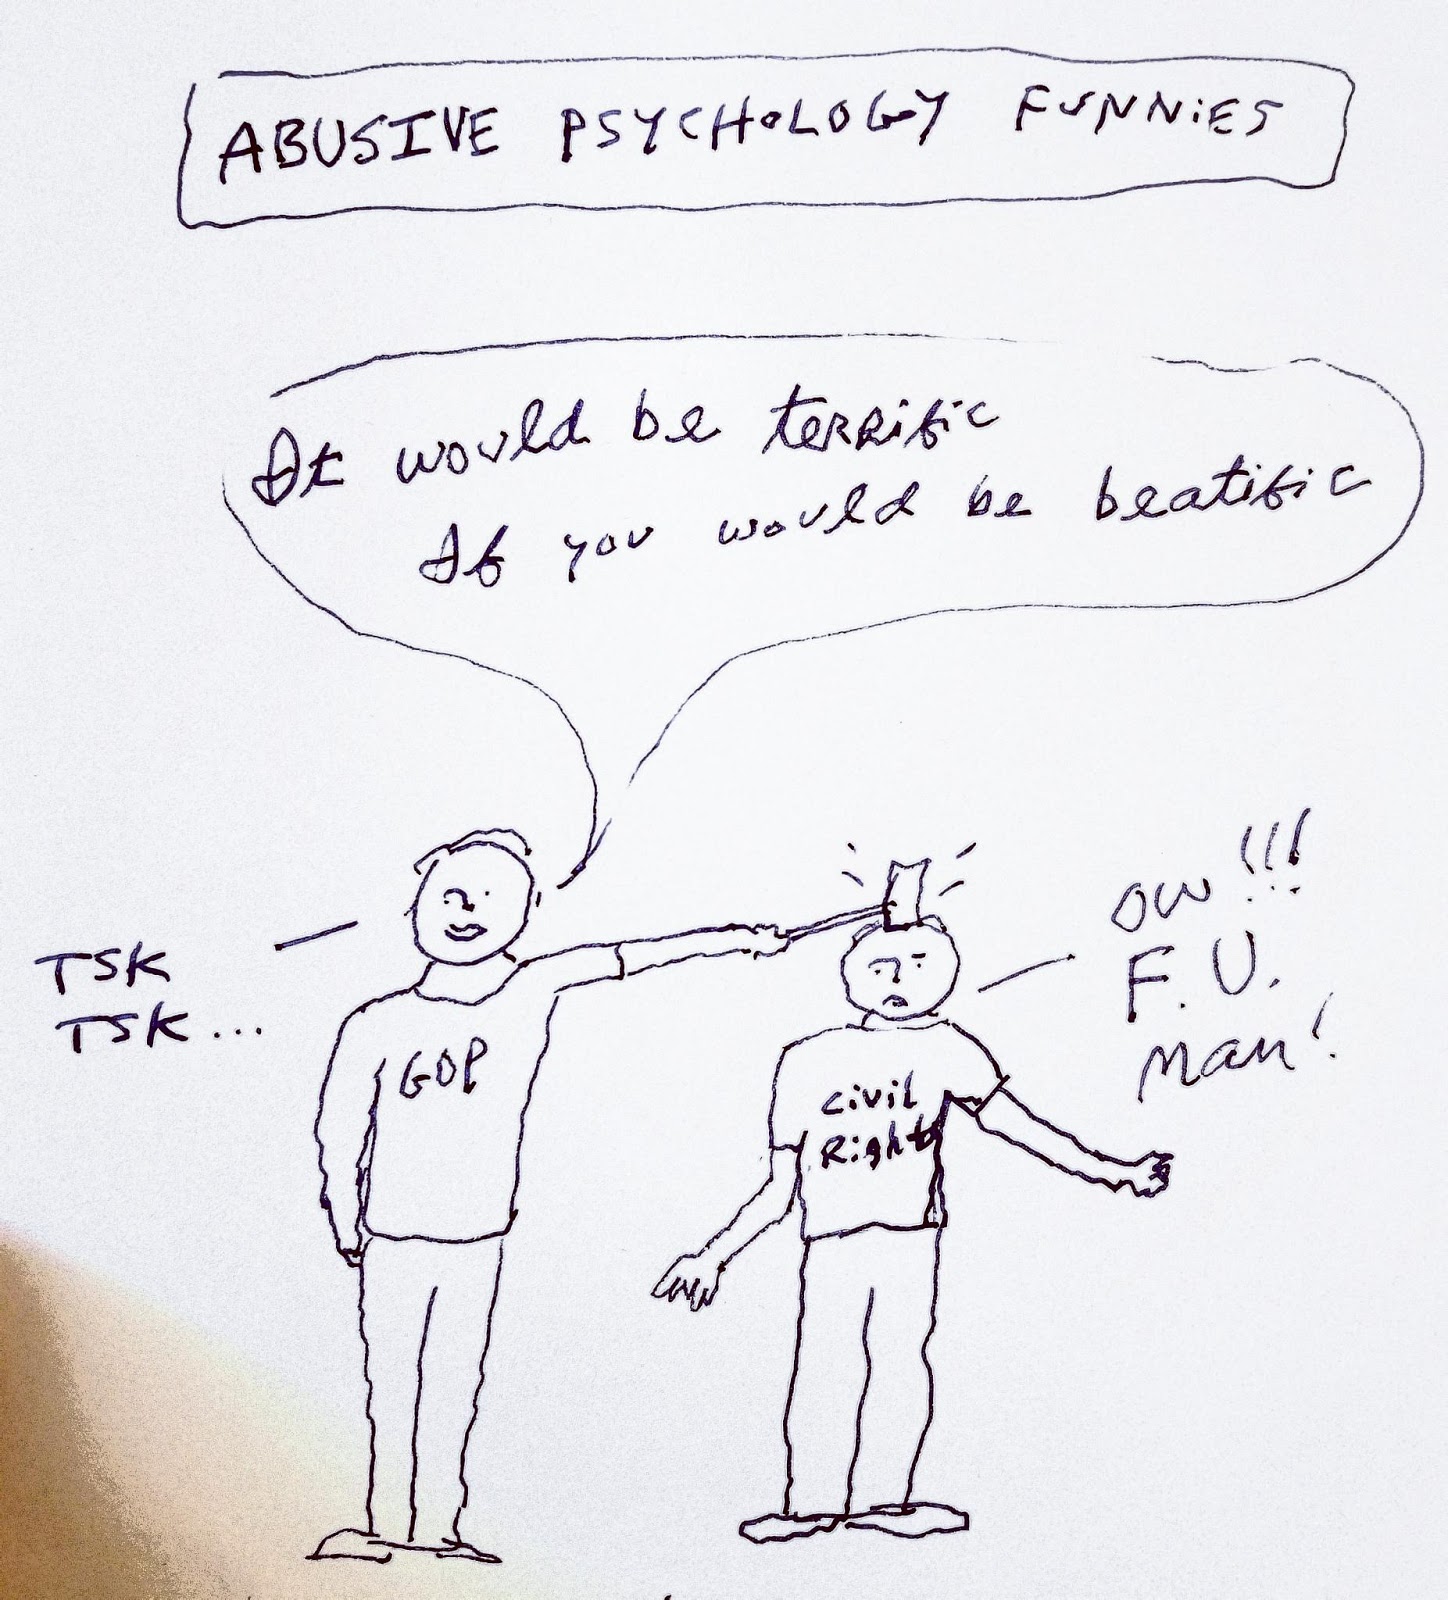 ABUSIVE PSYCHOLOGY FUNNIES
It would be terrific
If you would be beatific
TSK
TSK...
OW!!!
F.U.
Man!
GOP
Civil
Rights